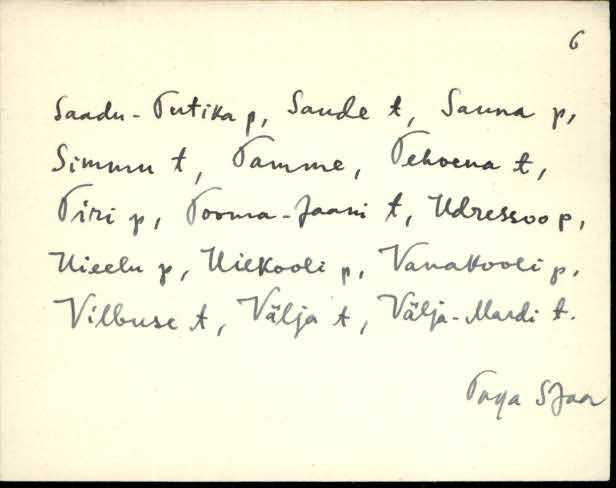 6
Saadu-Tutika p, Saude t, Sauna p,
Simmu t, Tamme, Tehvena t,
Tiri p, Tooma-Jaani t, Udressoo p,
Uieelu p, Uiekooli p, Vanakooli p,
Vilbuse t, Välja t, Välja-Mardi t.